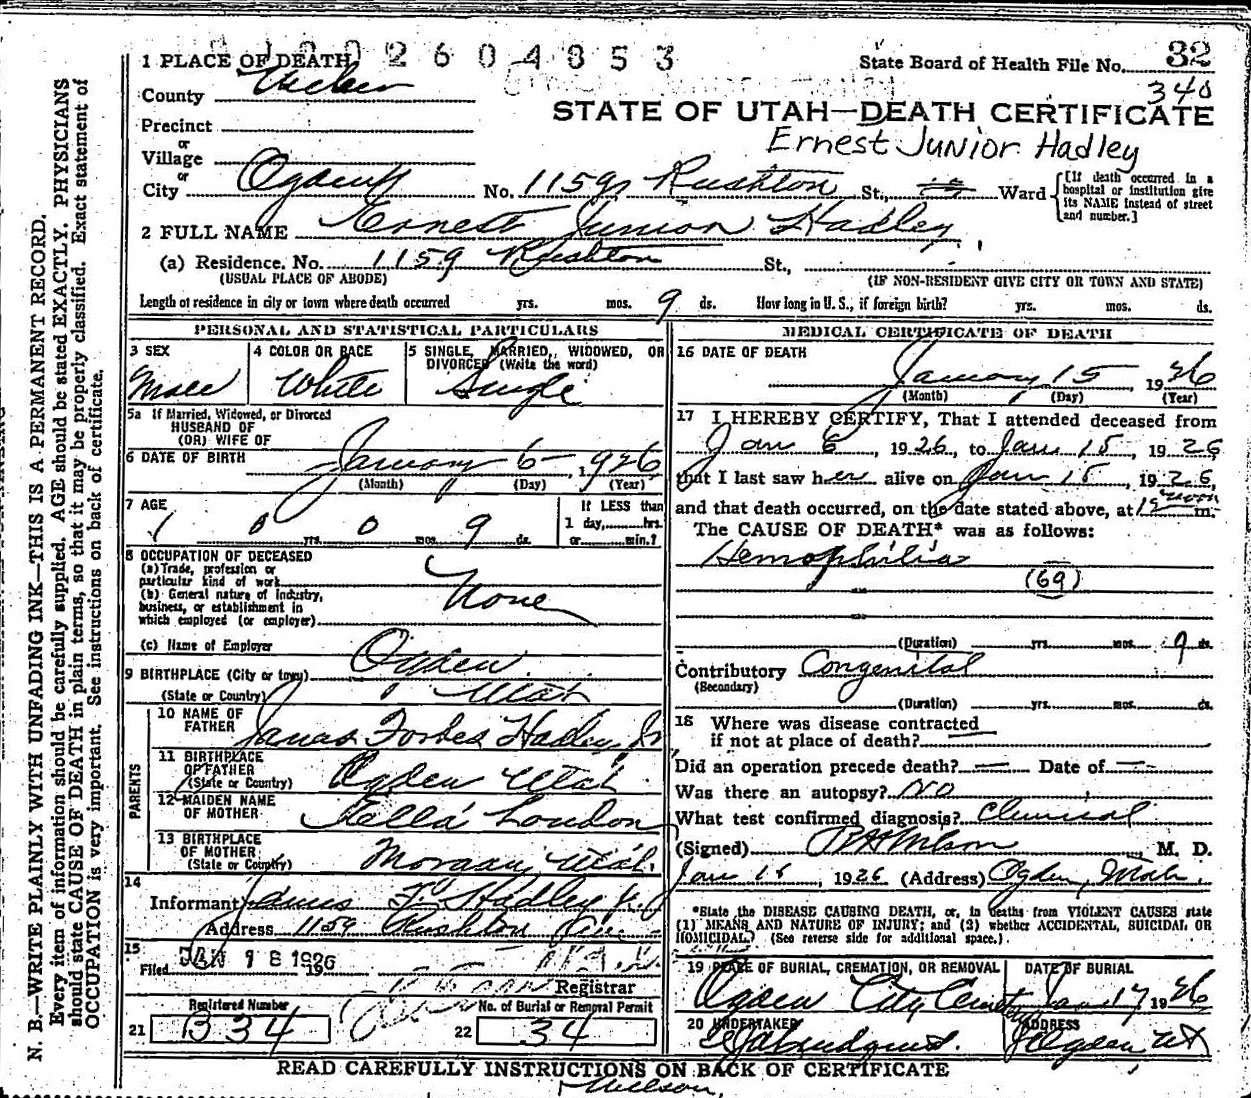 N. B.—WRITE PLAINLY WITH UNFADING INK—THIS IS A PERMANENT RECORD.
Every item of information should be carefully supplied. AGE should be stated EXACTLY. PHYSICIANS
should state CAUSE OF DEATH in plain terms, so that it may be properly classified. Exact statement of
OCCUPATION is very important. See instructions on back of certificate.
2604853
1 PLACE OF DEATH
State Board of Health File No. 32
340
County Weber
STATE OF UTAH—DEATH CERTIFICATE
Precinct
Ernest Junior Hadley
or
Village
or
City Ogden No. 1159 Rushton St., Ward
[If death occurred in a hospital or institution give its NAME instead of street and number.]
2 FULL NAME Ernest Junior Hadley
(a) Residence. No. 1159 Rushton St.,
(USUAL PLACE OF ABODE) (IF NON-RESIDENT GIVE CITY OR TOWN AND STATE)
Length of residence in city or town where death occurred yrs. mos. 9 ds. How long in U. S., if foreign birth? yrs. mos. ds.
PERSONAL AND STATISTICAL PARTICULARS
3 SEX
Male
4 COLOR OR RACE
White
5 SINGLE, MARRIED, WIDOWED, OR DIVORCED (Write the word)
Single
5a If Married, Widowed, or Divorced
HUSBAND OF
(OR) WIFE OF
6 DATE OF BIRTH January 6 1926
(Month) (Day) (Year)
7 AGE
0 yrs. 0 mos. 9 ds.
If LESS than
1 day, hrs.
or min.?
8 OCCUPATION OF DECEASED
(a) Trade, profession or
particular kind of work
(b) General nature of industry,
business, or establishment in
which employed (or employer)
None
(c) Name of Employer
9 BIRTHPLACE (City or town) Ogden
(State or Country) Utah
PARENTS
10 NAME OF
FATHER James Forbes Hadley Jr
11 BIRTHPLACE
OF FATHER
(State or Country) Ogden Utah
12 MAIDEN NAME
OF MOTHER Stella London
13 BIRTHPLACE
OF MOTHER
(State or Country) Utah.
14
Informant James F. Hadley Jr
Address 1159 Rushton Ave
15
Filed JAN 18 1926
Registrar
Registered Number
21 B34
No. of Burial or Removal Permit
22 34
MEDICAL CERTIFICATE OF DEATH
16 DATE OF DEATH
January 15, 1926
(Month) (Day) (Year)
17 I HEREBY CERTIFY, That I attended deceased from
Jan 6, 1926, to Jan 15, 1926
that I last saw her alive on Jan 15, 1926,
and that death occurred, on the date stated above, at 12 noon m.
The CAUSE OF DEATH* was as follows:
Hemophilia
(69)
(Duration) yrs. mos. 9 ds.
Contributory Congenital
(Secondary)
(Duration) yrs. mos. ds.
18 Where was disease contracted
if not at place of death?
Did an operation precede death? — Date of —
Was there an autopsy? No
What test confirmed diagnosis? Clinical
(Signed) Wilson, M. D.
Jan 16, 1926 (Address) Ogden, Utah.
*State the DISEASE CAUSING DEATH, or, in deaths from VIOLENT CAUSES state
(1) MEANS AND NATURE OF INJURY; and (2) whether ACCIDENTAL, SUICIDAL OR
HOMICIDAL? (See reverse side for additional space.)
19 PLACE OF BURIAL, CREMATION, OR REMOVAL
Ogden City Cemetery
DATE OF BURIAL
Jan 17 1926
20 UNDERTAKER
ADDRESS
Ogden, Ut
READ CAREFULLY INSTRUCTIONS ON BACK OF CERTIFICATE